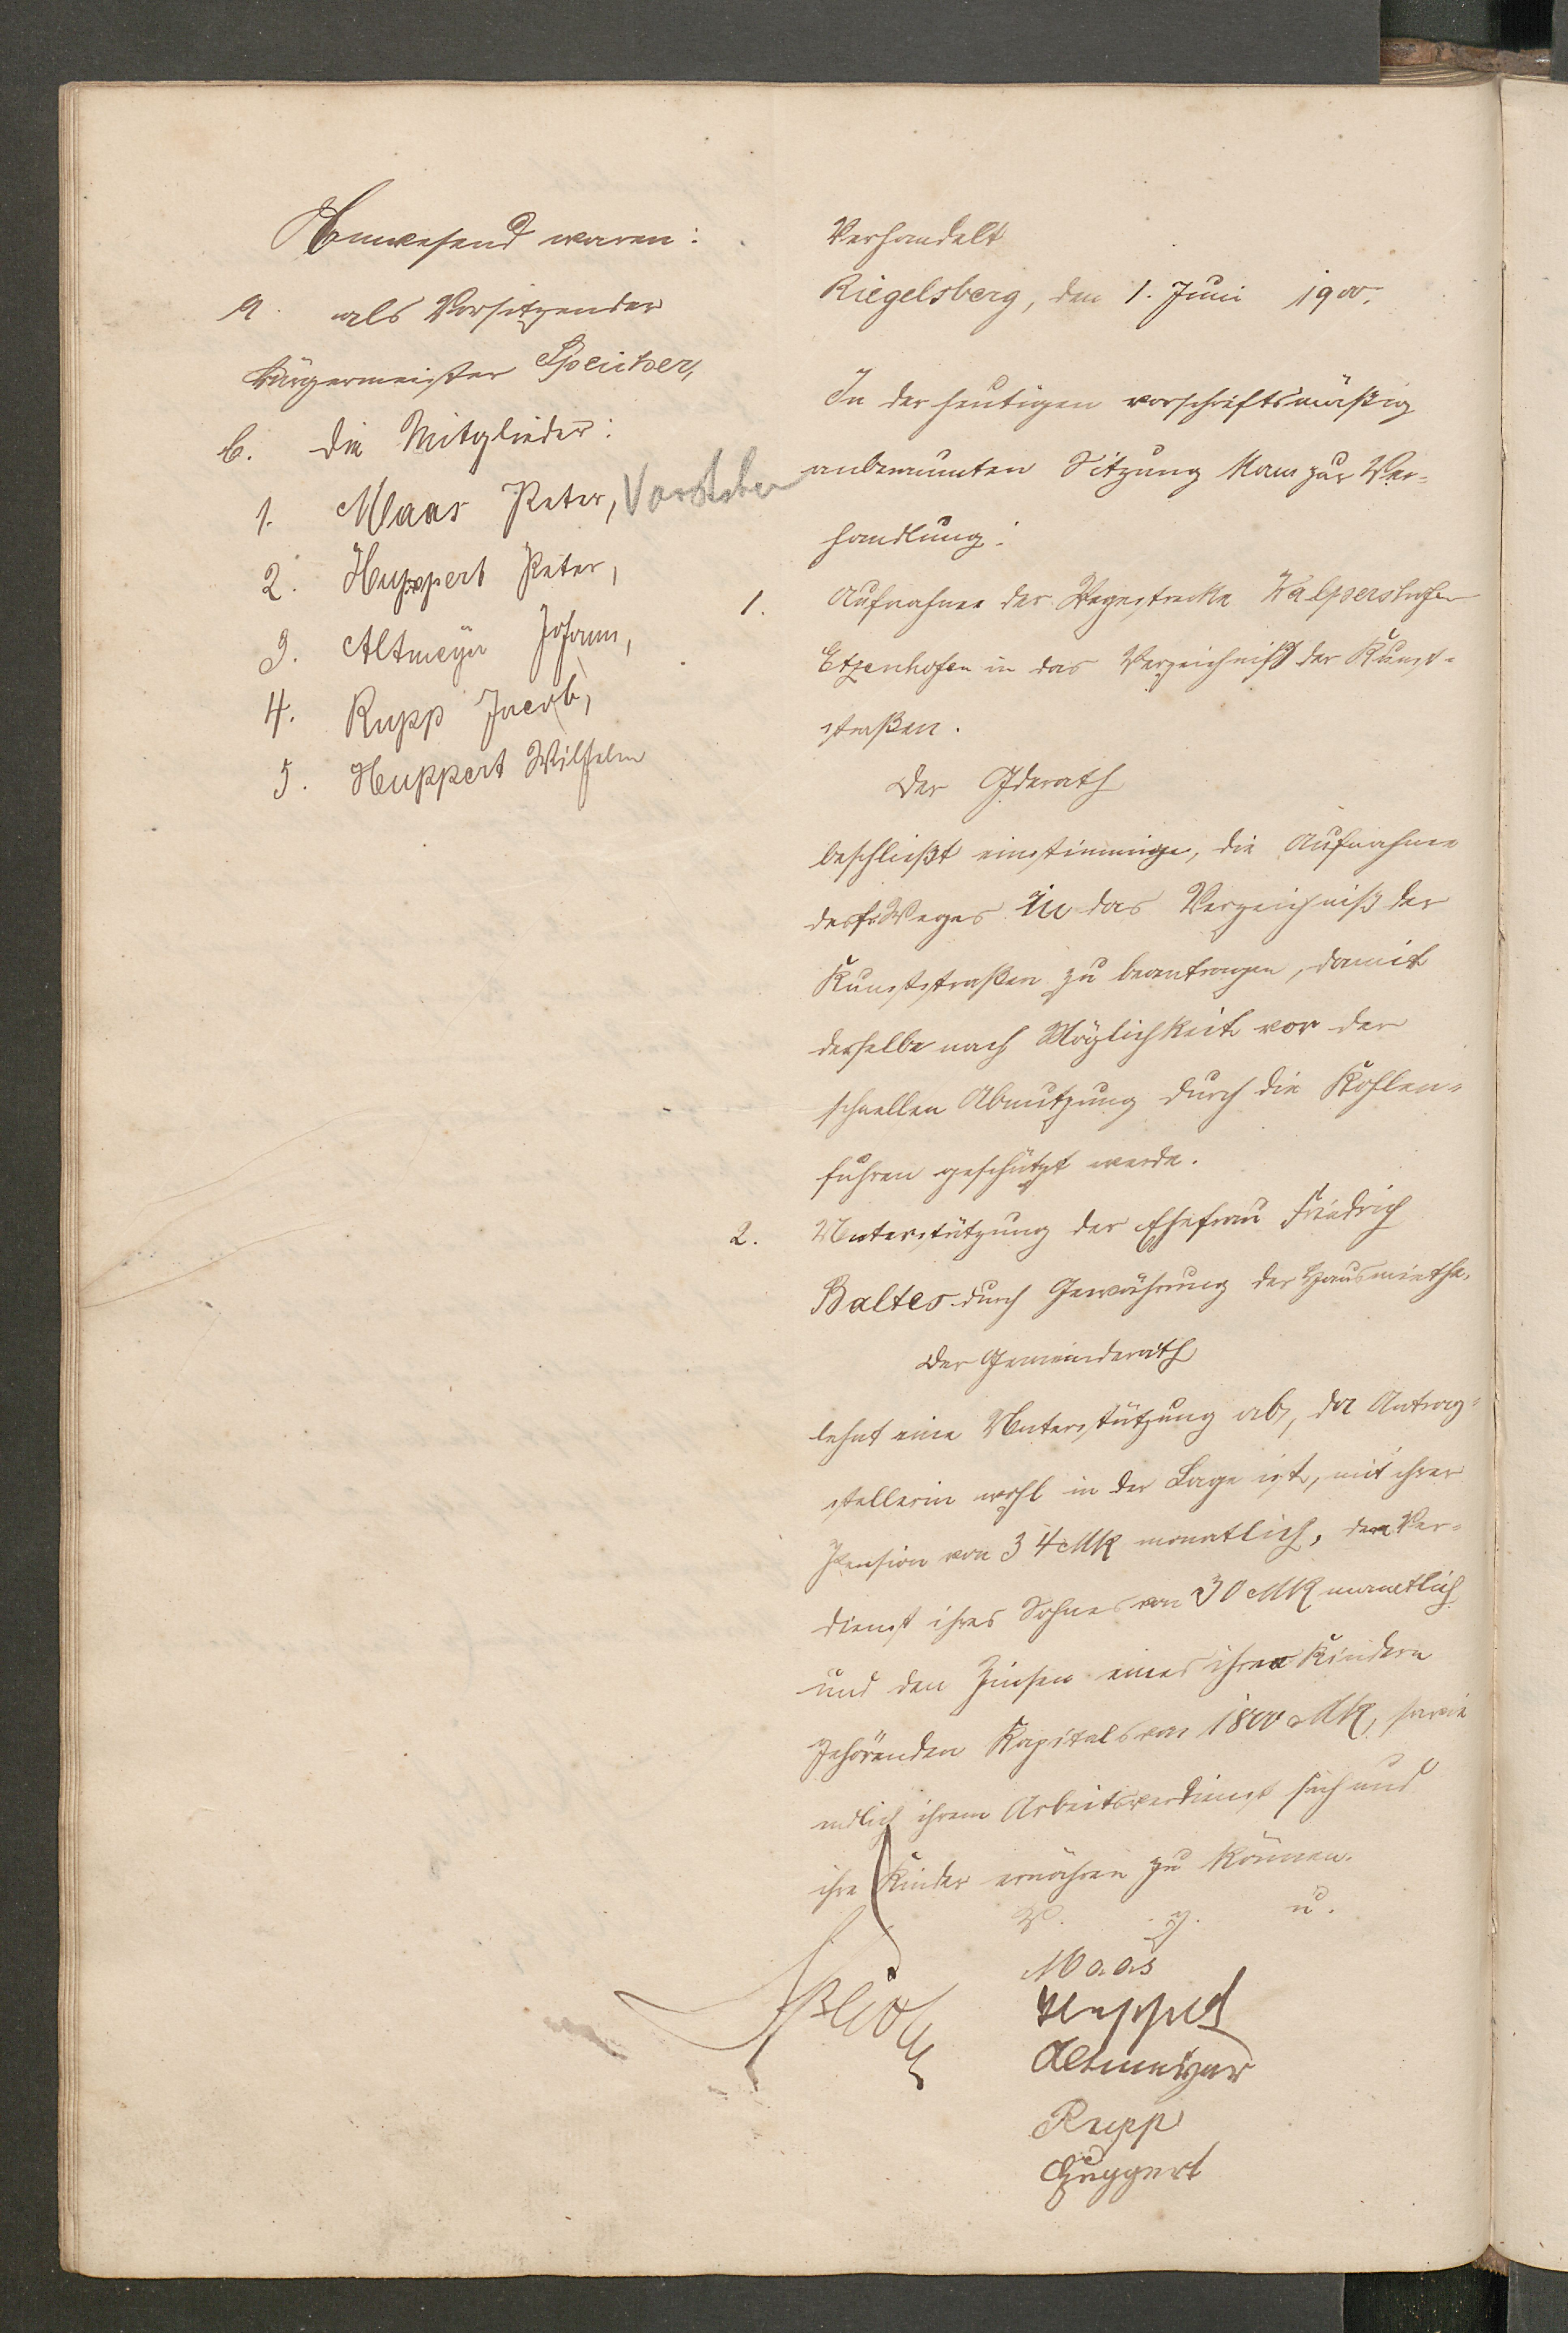 Anwesend waren:
a. als Vorsitzender
Bürgermeister Speicher,
b. die Mitglieder:
1. Maas Peter, Vorsteher
2. Huppert Peter,
3. Altmeyer Johann,
4. Rupp Jacob,
5. Huppert Wilhelm
Verhandelt
Riegelsberg, den 1. Juni 1900.
In der heutigen vorschriftsmäßig
anberaumten Sitzung kam zur Ver-
handlung:
1. Aufnahme der Wegestrecke Walpershofen
Etzenhofen in das Verzeichniß der Kunst-
straßen.
Der Gderath
beschließt einstimmig, die Aufnahme
des Weges in das Verzeichniß der
Kunststraßen zu beantragen, damit
derselbe nach Möglichkeit vor der
schnellen Abnutzung durch die Kohlen-
fuhren geschützt werde.
2. Unterstützung der Ehefrau Friedrich
Baltes durch Gewährung der Hausmiethe.
Der Gemeinderath
lehnt eine Unterstützung ab, da Antrag-
stellerin wohl in der Lage ist, mit ihrer
Pension von 34 Mk monatlich, dem Ver-
dienst ihres Sohnes von 30 Mk monatlich
und den Zinsen eines ihren Kindern
gehörenden Kapitals von 1800 Mk, sowie
endlich ihrem Arbeitsverdienst sich und
ihre Kinder ernähren zu können.
V. g. u.
Maas
Huppert
Altmeyer
Rupp
Huppert
Speicher